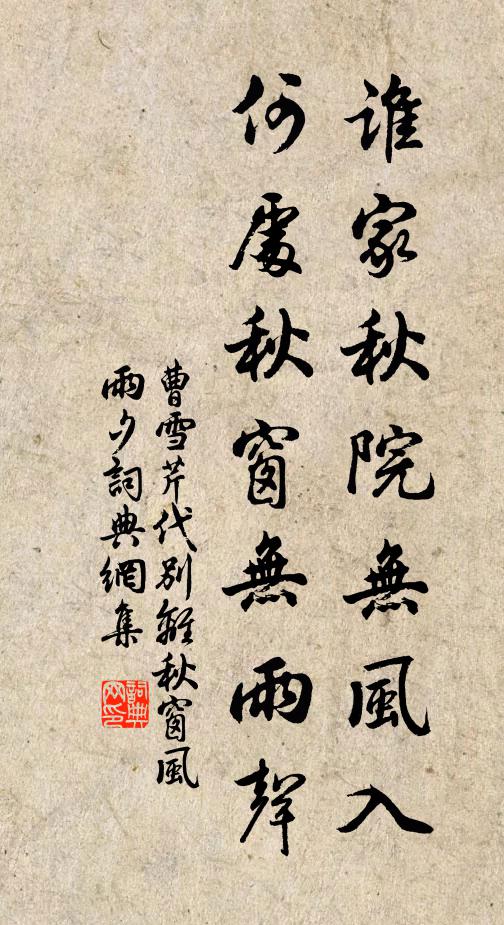 誰家秋院無風入
何處秋窗無雨聲
曹雪芹代別離秋窗風
雨夕詞典網集
詞典
网印